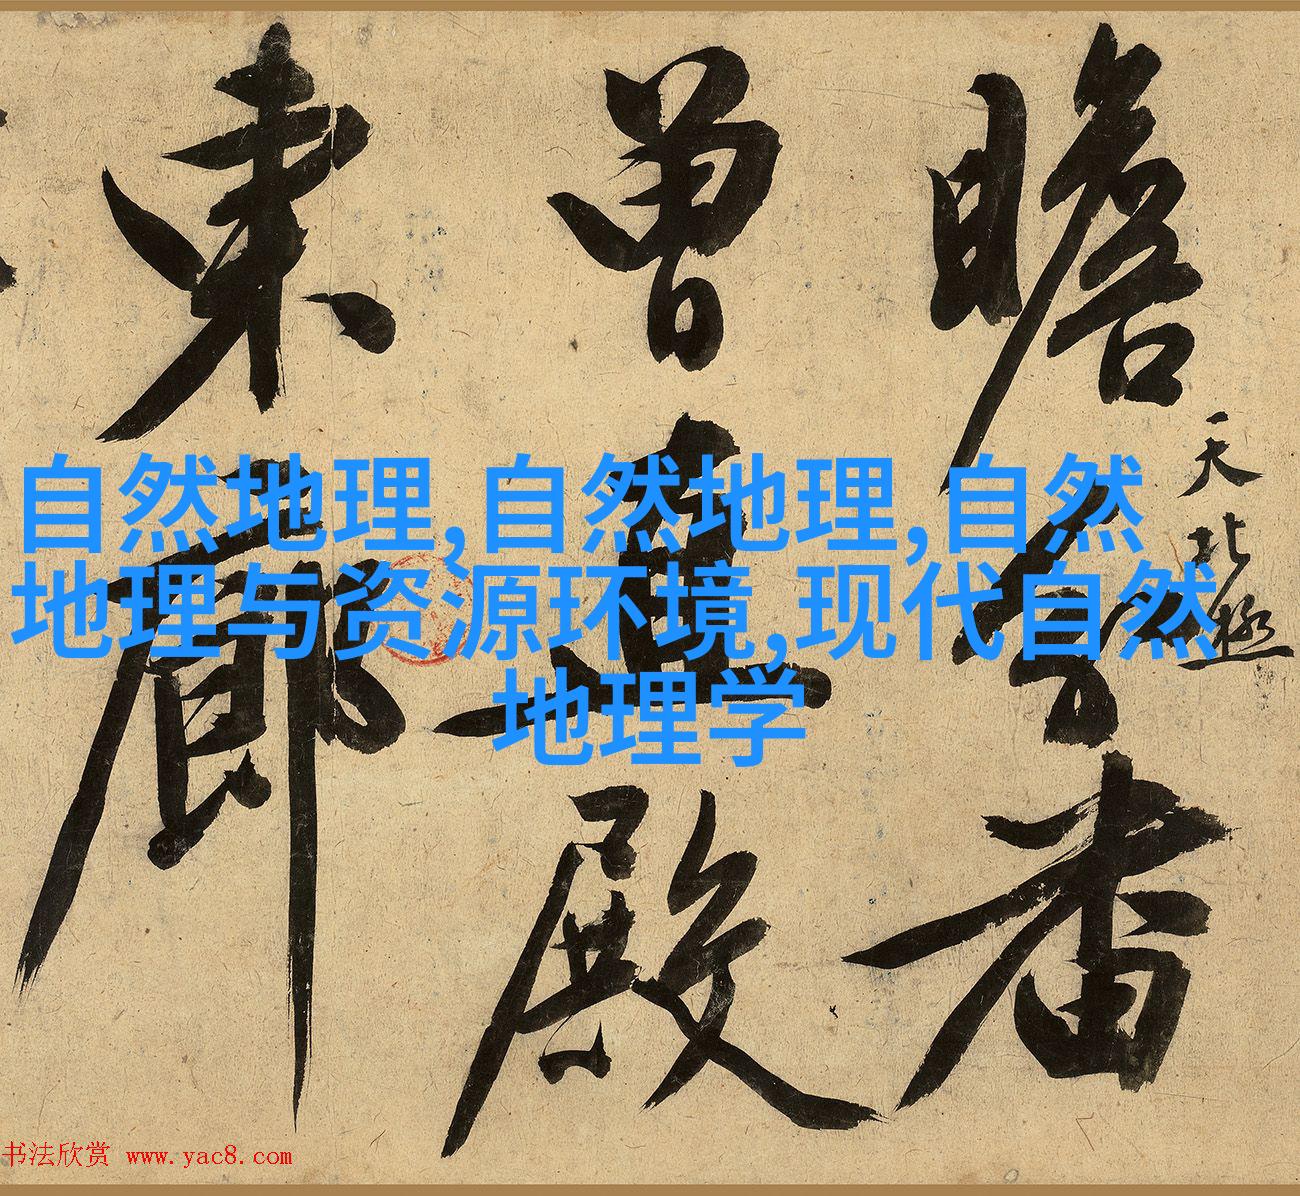 瞻
天北極
者
曾
殿
東
廊
自然地理,自然地理,自然
地理与资源环境,现代自然
地理学
书法欣赏 www.yac8.com